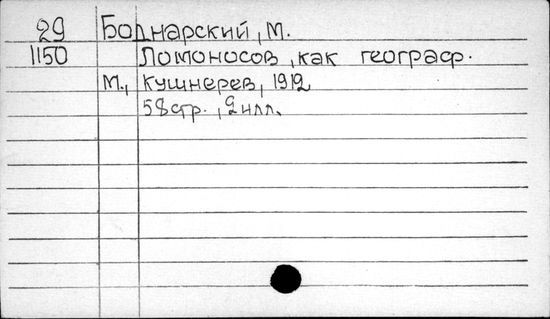 29 Боднарский, М.
1150 Ломоносов, как географ.
М., Кушнерев, 1912
58стр., 2илл.